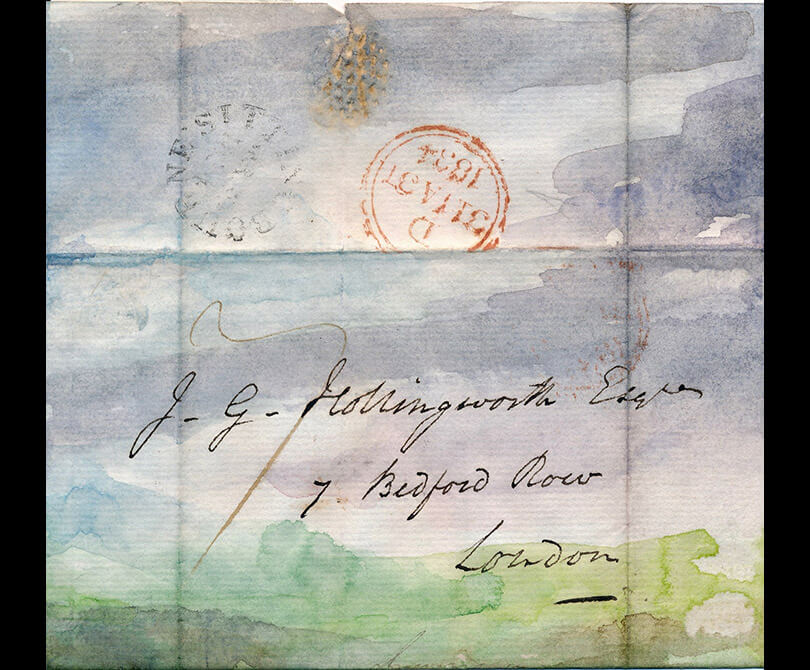 D
31 JA 31
1834
J. G. Hollingworth Esqre
7 Bedford Row
London